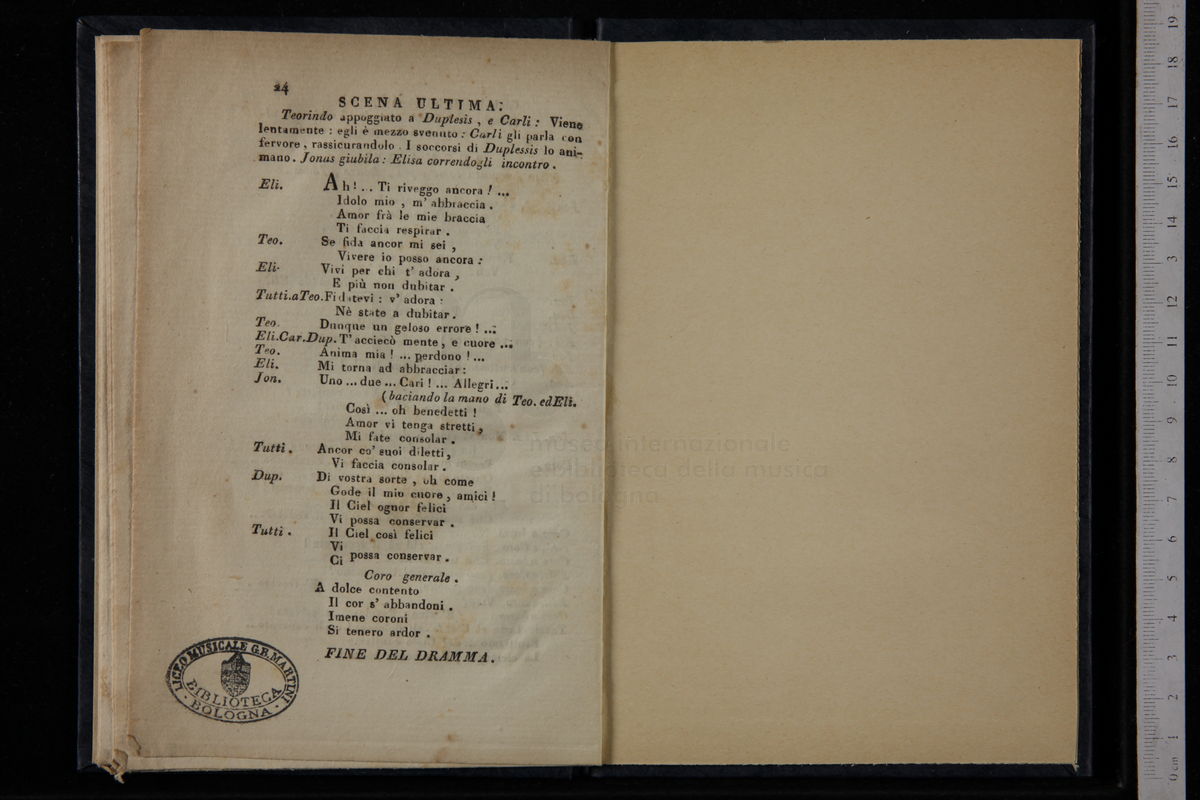 24
SCENA ULTIMA.
Teorindo appoggiato a Duplesis , e Carli : Viene
lentamente : egli è mezzo svenuto : Carli gli parla con
fervore , rassicurandolo . I soccorsi di Duplessis lo ani-
mano . Jonas giubila : Elisa correndogli incontro .
Eli. Ah ! .. Ti riveggo ancora ! ...
Idolo mio , m' abbraccia .
Amor frà le mie braccia
Ti faccia respirar .
Teo. Se fida ancor mi sei ,
Vivere io posso ancora :
Eli. Vivi per chi t' adora ,
E più non dubitar .
Tutti.aTeo.Fidatevi : v' adora :
Nè state a dubitar .
Teo. Dunque un geloso errore ! ...
Eli.Car.Dup.T' acciecò mente , e cuore ...
Teo. Anima mia ! ... perdono ! ...
Eli. Mi torna ad abbracciar :
Jon. Uno ... due ... Cari ! ... Allegri ...
( baciando la mano di Teo. edEli.
Così ... oh benedetti !
Amor vi tenga stretti ,
Mi fate consolar .
Tutti . Ancor co' suoi diletti ,
Vi faccia consolar .
Dup. Di vostra sorte , oh come
Gode il mio cuore , amici !
Il Ciel ognor felici
Vi possa conservar .
Tutti . Il Ciel così felici
Vi
Ci possa conservar .
Coro generale .
A dolce contento
Il cor s' abbandoni .
Imene coroni
Si tenero ardor .
FINE DEL DRAMMA .
LICEO MUSICALE G.B. MARTINI
BIBLIOTECA
BOLOGNA
museo internazionale
e biblioteca della musica
di bologna
0 cm 1 2 3 4 5 6 7 8 9 10 11 12 3 14 15 16 17 18 19